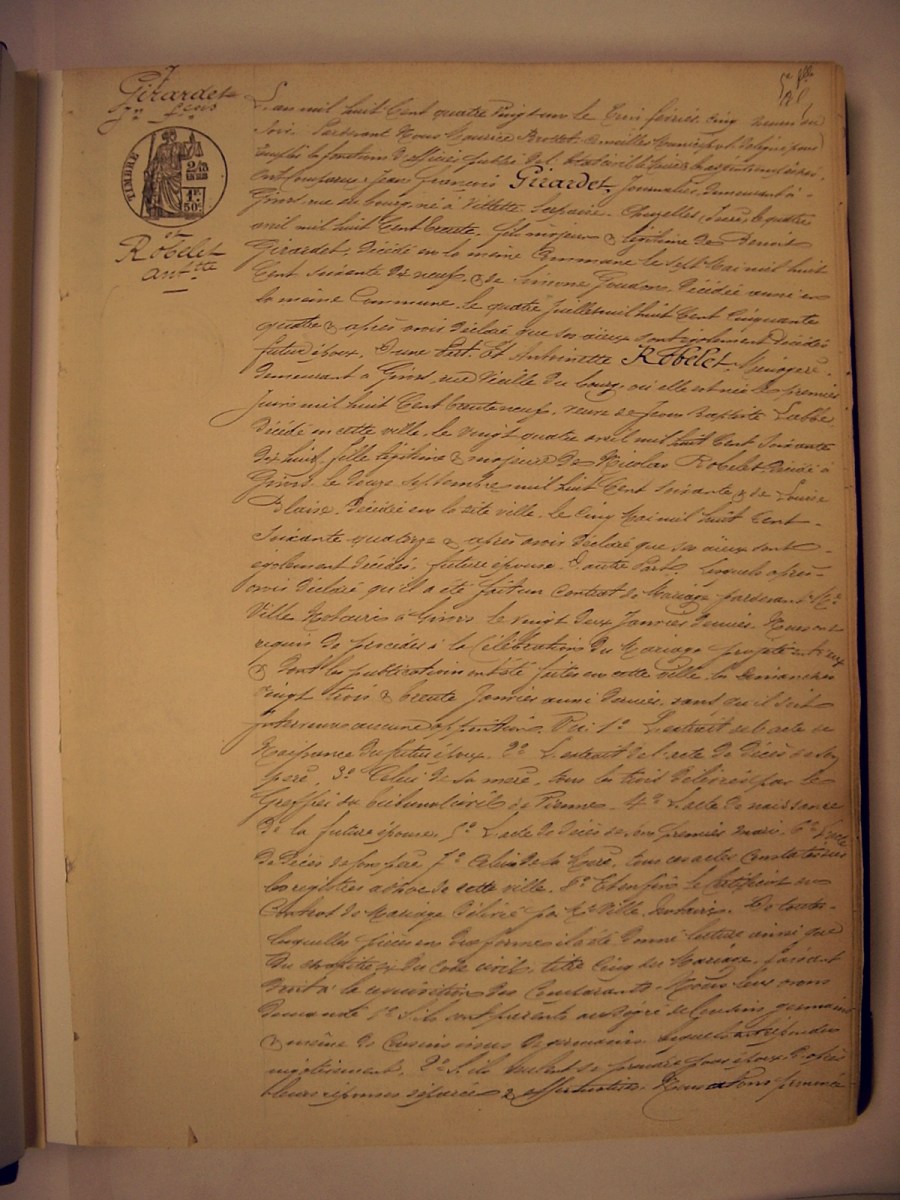 Girardet
Jn. fçois
TIMBRE
1F.
50c
et
Robelet
antte
L'an mil huit Cent quatre vingt un le Trois février, Cinq heures du
Soir, Pardevant Nous Maurice Conseiller Municipal, délégué pour
remplir les fonctions d'officier public de l'état civil
ont Comparu: Jean françois Girardet, Journalier, demeurant à
Givors, rue du bourg, né à Villette Serpaize Isère, le quatre
avril mil huit Cent trente, fils majeur & légitime de Benoit
Girardet, décédé en la même Commune le sept Mai mil huit
Cent soixante dix neuf, & de Simone Goudon, Décédée aussi en
la même Commune, le quatre juillet mil huit Cent Cinquante
quatre & après avoir déclaré que ses aïeux sont également décédés
futur époux, D'une Part. Et Antoinette Robelet, Ménagère
demeurant à Givors, rue Vieille du bourg, où elle est née le premier
Juin mil huit Cent trente neuf, veuve de Jean Baptiste Labbe
décédé en cette ville, le vingt quatre avril mil huit Cent soixante
dix huit, fille légitime & majeure de Nicolas Robelet décédé à
Givors, le douze Septembre mil huit Cent soixante & de Louise
Blaise, Décédée en la dite ville, le Cinq Mai mil huit Cent
Soixante quatorze & après avoir déclaré que ses aïeux sont
également décédés, future épouse, D'autre Part. Lesquels après
avoir déclaré qu'il a été fait un Contrat de Mariage pardevant Me
Ville Notaire à Givors le vingt deux Janvier dernier. Nous ont
requis de procéder à la Célébration du Mariage projeté entr'eux
& dont les publications ont été faites en cette ville, les Dimanches
vingt trois & trente Janvier aussi dernier, sans qu'il soit
intervenu aucune opposition. Vu: 1º L'extrait de l'acte de
Naissance du futur époux. 2º L'extrait de l'acte de Décès de son
père, 3º Celui de sa mère, tous les trois délivrés par le
Greffier du tribunal civil de Vienne. 4º L'acte de naissance
de la future épouse, 5º L'acte de décès de son premier mari, 6º L'acte
de décès de son père, 7º Celui de sa Mère, tous ces actes constatés sur
les registres de cette ville. 8º Et enfin le Certificat du
Contrat de Mariage délivré par Me Ville, Notaire. De toutes
lesquelles pièces en due forme il a été donné lecture ainsi que
du chapitre six du Code civil, titre Cinq du Mariage. Faisant
Droit à la réquisition des Comparants. Nous leur avons
demandé 1º S'ils sont parents au degré de Cousins germains
& même de Cousins issus de germains, lesquels ont répondu
négativement, 2º S'ils veulent se prendre pour époux & après
leurs réponses séparées & affirmatives. Nous avons prononcé